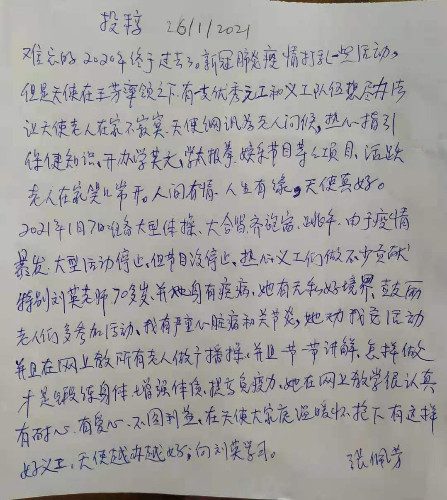 投稿 26/1/2021
难忘的2020年终于过去了。新冠肺炎疫情打乱一些活动,
但是天使在王芳率领之下.有一支优秀员工和义工队伍想尽办法
让天使老人在家不寂寞.天使网讯为老人问候,热心指引
保健知识.开办学英文,学太极拳.娱乐节目等等项目,活跃
老人在家笑口常开。人间有情.人生有缘,天使真好。
2021年1月7日准备大型体操、大合唱.齐跳舞、跳年.由于疫情
暴发.大型活动停止.但节目没停止.热心义工们做不少贡献
特别刘英老师70多岁.并她身有疾病.她有无私好境界.鼓励
老人们多参加活动.我有严重心脏病和关节炎,她劝我多活动
并且在网上教所有老人做广播操.并且一节一节讲解.怎样做
才是锻炼身体.增强体质.提高免疫力.她在网上教学很认真
有耐心.有爱心.不图利益.在天使大家庭温暖怀抱下有这样
好义工.天使越办越好,向刘英学习。
张佩芳